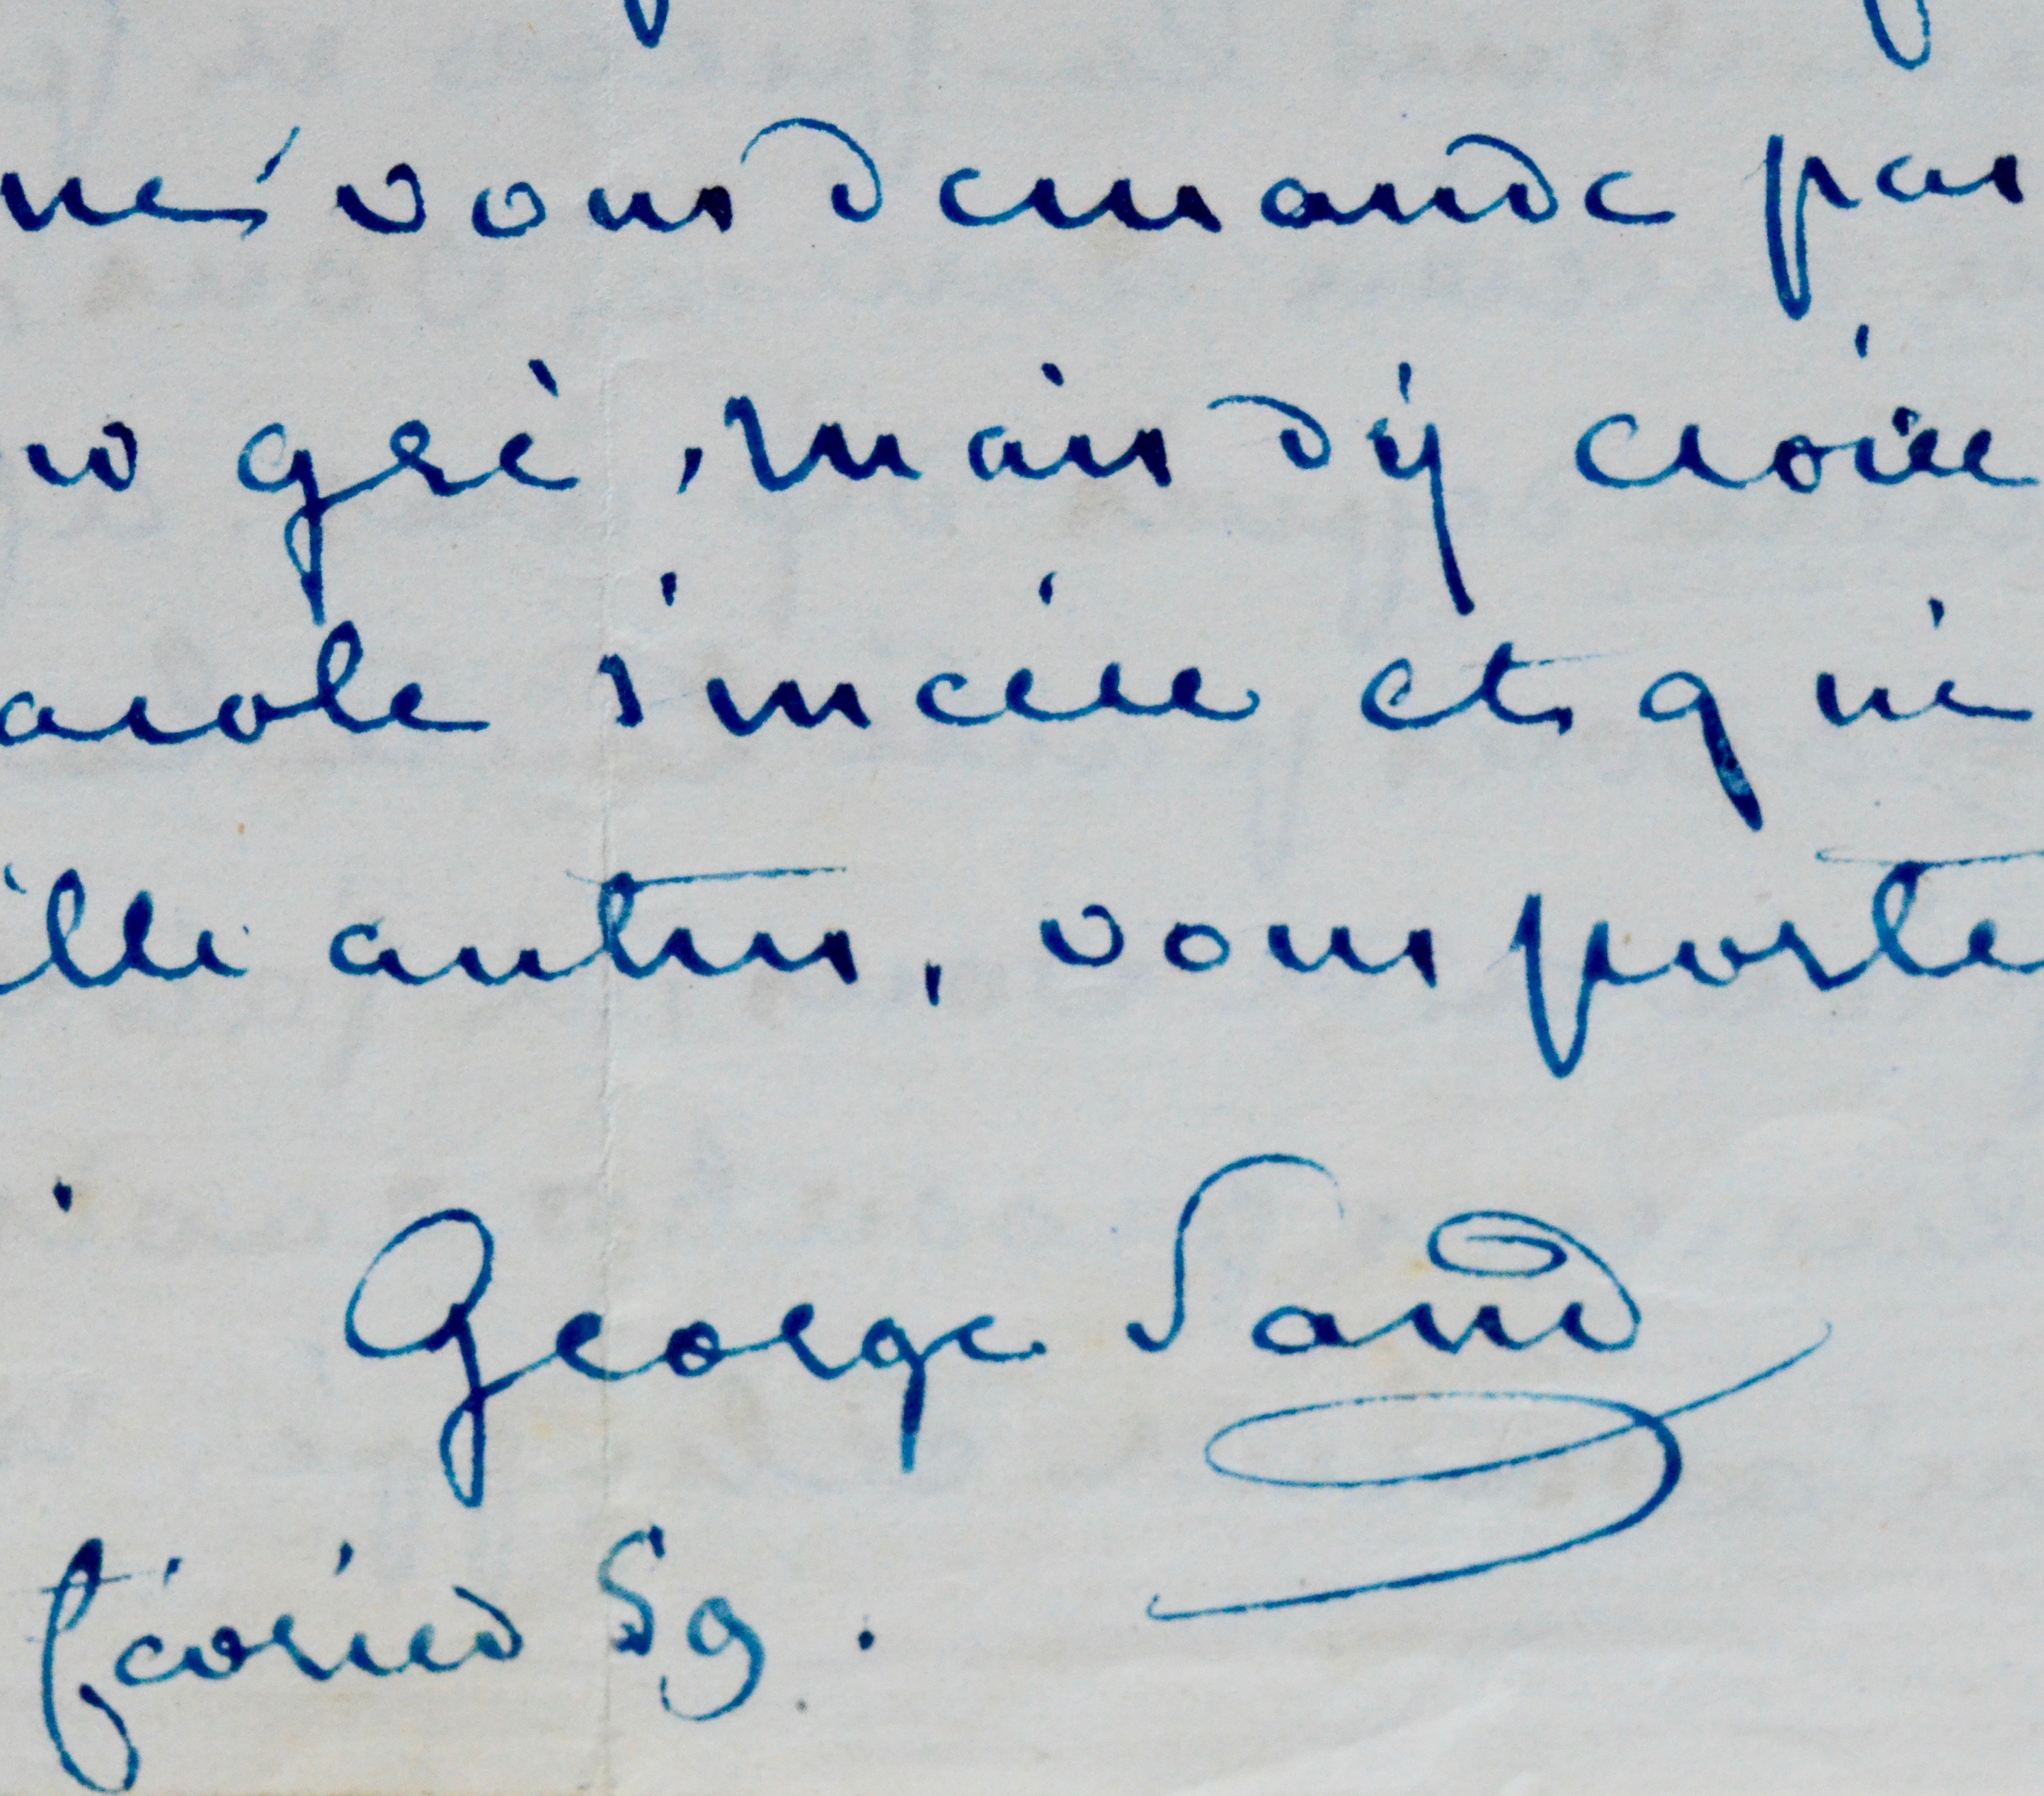 ne vous demande pas
gré, mais d'y croire
arole sincère et qui
ille autres, vous porte
.
George Sand
février 59.